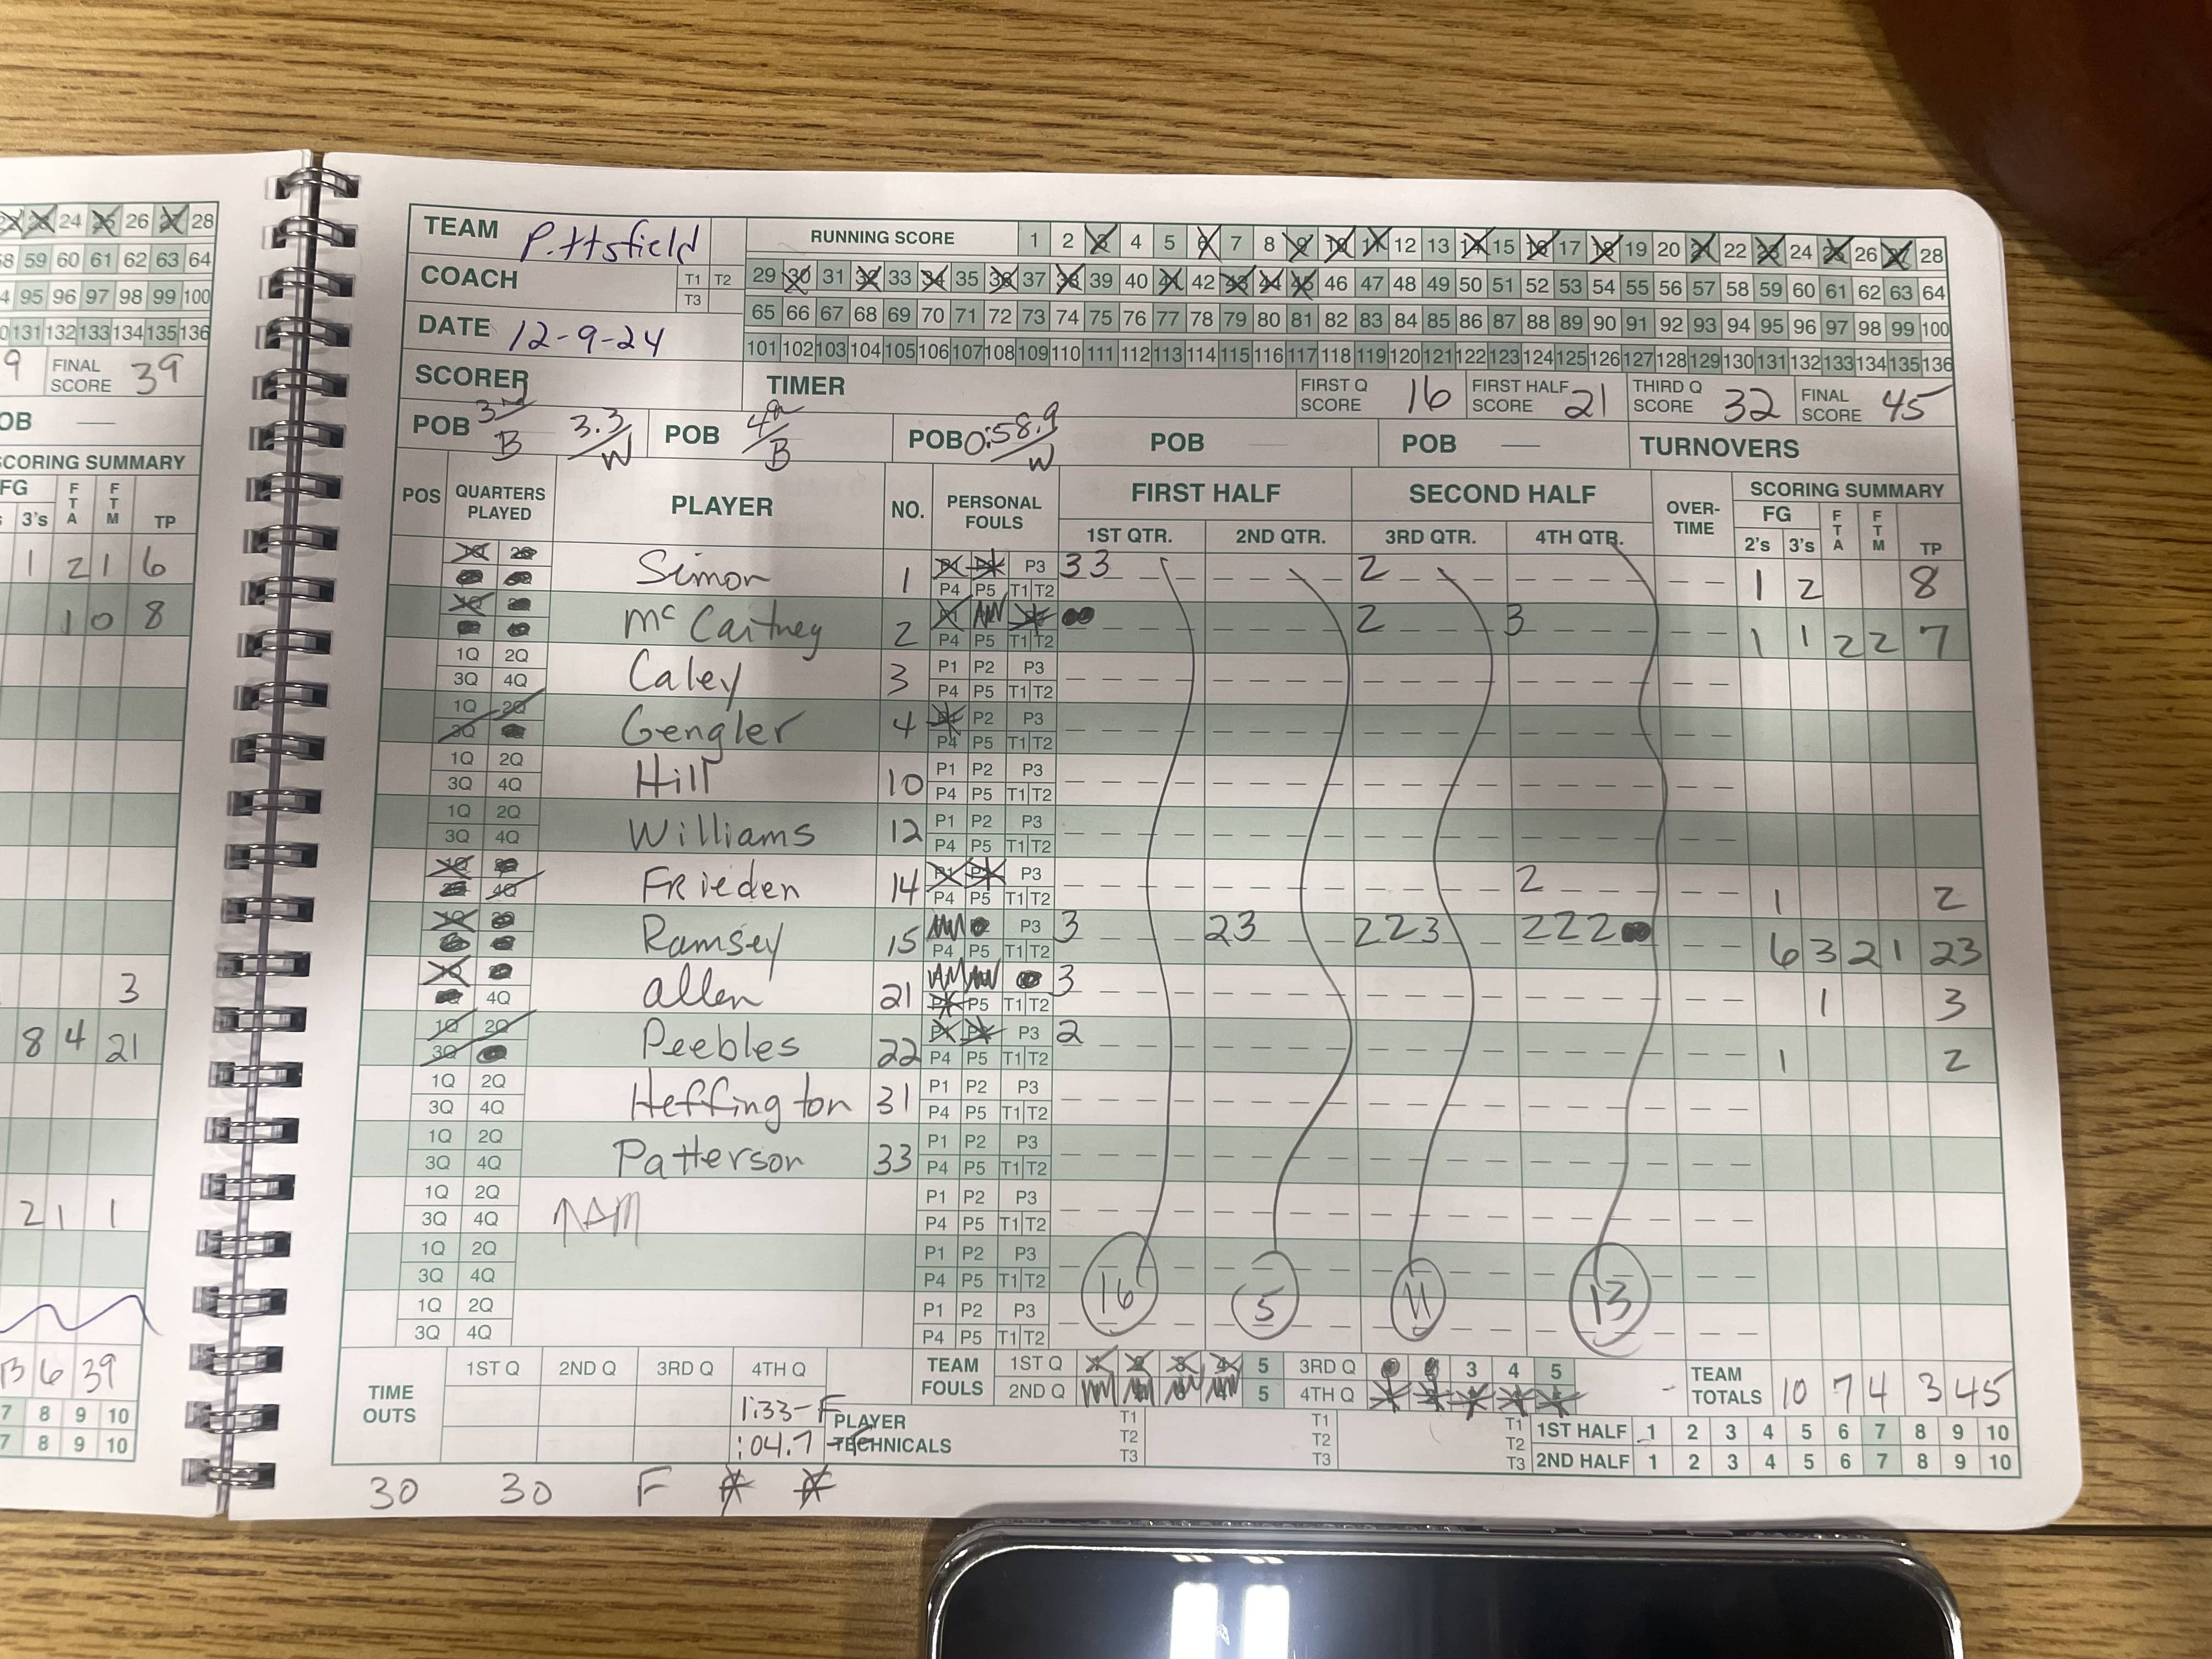 TEAM Pittsfield
RUNNING SCORE 1 2 3 4 5 6 7 8 9 10 11 12 13 14 15 16 17 18 19 20 21 22 23 24 25 26 27 28
COACH T1 T2 T3
29 30 31 32 33 34 35 36 37 38 39 40 41 42 43 44 45 46 47 48 49 50 51 52 53 54 55 56 57 58 59 60 61 62 63 64
65 66 67 68 69 70 71 72 73 74 75 76 77 78 79 80 81 82 83 84 85 86 87 88 89 90 91 92 93 94 95 96 97 98 99 100
DATE 12-9-24
101 102 103 104 105 106 107 108 109 110 111 112 113 114 115 116 117 118 119 120 121 122 123 124 125 126 127 128 129 130 131 132 133 134 135 136
SCORER TIMER FIRST Q SCORE 16 FIRST HALF SCORE 21 THIRD Q SCORE 32 FINAL SCORE 45
POB 3rd/B 3.3/W POB 4th/B POB 0:58.9/W POB — POB — TURNOVERS
POS QUARTERS PLAYED PLAYER NO. PERSONAL FOULS FIRST HALF SECOND HALF OVER-TIME SCORING SUMMARY
1ST QTR. 2ND QTR. 3RD QTR. 4TH QTR. FG 2's 3's FTA FTM TP
Simon 1 P3 33 2 1 2 8
P4 P5 T1 T2
McCartney 2 2 3 1 1 2 2 7
P4 P5 T1 T2
1Q 2Q Caley 3 P1 P2 P3
3Q 4Q P4 P5 T1 T2
1Q 2Q Gengler 4 P2 P3
3Q P4 P5 T1 T2
1Q 2Q Hill 10 P1 P2 P3
3Q 4Q P4 P5 T1 T2
1Q 2Q Williams 12 P1 P2 P3
3Q 4Q P4 P5 T1 T2
1Q Frieden 14 P1 P3 2 1 2
4Q P4 P5 T1 T2
Ramsey 15 P3 3 23 223 222 6 3 2 1 23
P4 P5 T1 T2
Allen 21 3 1 3
4Q P5 T1 T2
1Q 2Q Peebles 22 P3 2 1 2
3Q P4 P5 T1 T2
1Q 2Q Heffington 31 P1 P2 P3
3Q 4Q P4 P5 T1 T2
1Q 2Q Patterson 33 P1 P2 P3
3Q 4Q P4 P5 T1 T2
1Q 2Q P1 P2 P3
3Q 4Q P4 P5 T1 T2
1Q 2Q P1 P2 P3
3Q 4Q P4 P5 T1 T2
1Q 2Q P1 P2 P3
3Q 4Q P4 P5 T1 T2
16 5 11 13
TIME OUTS 1ST Q 2ND Q 3RD Q 4TH Q
1:33-F
:04.7-F
TEAM FOULS 1ST Q 1 2 3 4 5 3RD Q 3 4 5
2ND Q 5 4TH Q
TEAM TOTALS 10 7 4 3 45
PLAYER TECHNICALS T1 T2 T3 T1 T2 T3 T1 T2 T3
1ST HALF 1 2 3 4 5 6 7 8 9 10
2ND HALF 1 2 3 4 5 6 7 8 9 10
30 30 F
24 25 26 27 28
59 60 61 62 63 64
95 96 97 98 99 100
131 132 133 134 135 136
9 FINAL SCORE 39
OB —
SCORING SUMMARY
FG 3's FTA FTM TP
1 2 1 6
1 0 8
3
8 4 21
2 1 1
13 6 39
7 8 9 10
7 8 9 10